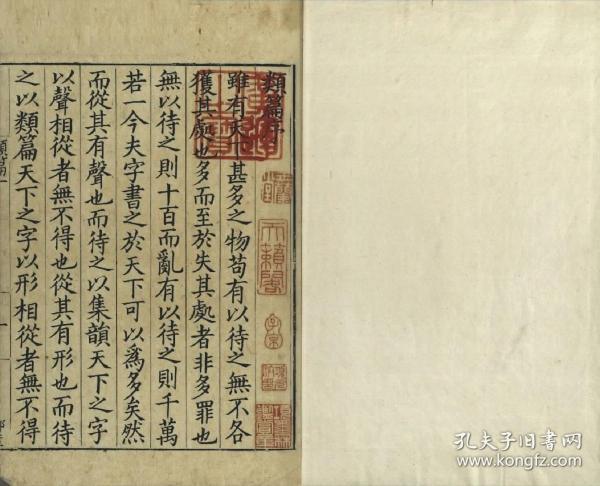 類篇序
雖有天下甚多之物苟有以待之無不各
獲其處也多而至於失其處者非多罪也
無以待之則十百而亂有以待之則千萬
若一今夫字書之於天下可以為多矣然
而從其有聲也而待之以集韻天下之字
以聲相從者無不得也從其有形也而待
之以類篇天下之字以形相從者無不得
類篇一
天籟閣
孔夫子旧书网
www.kongfz.com